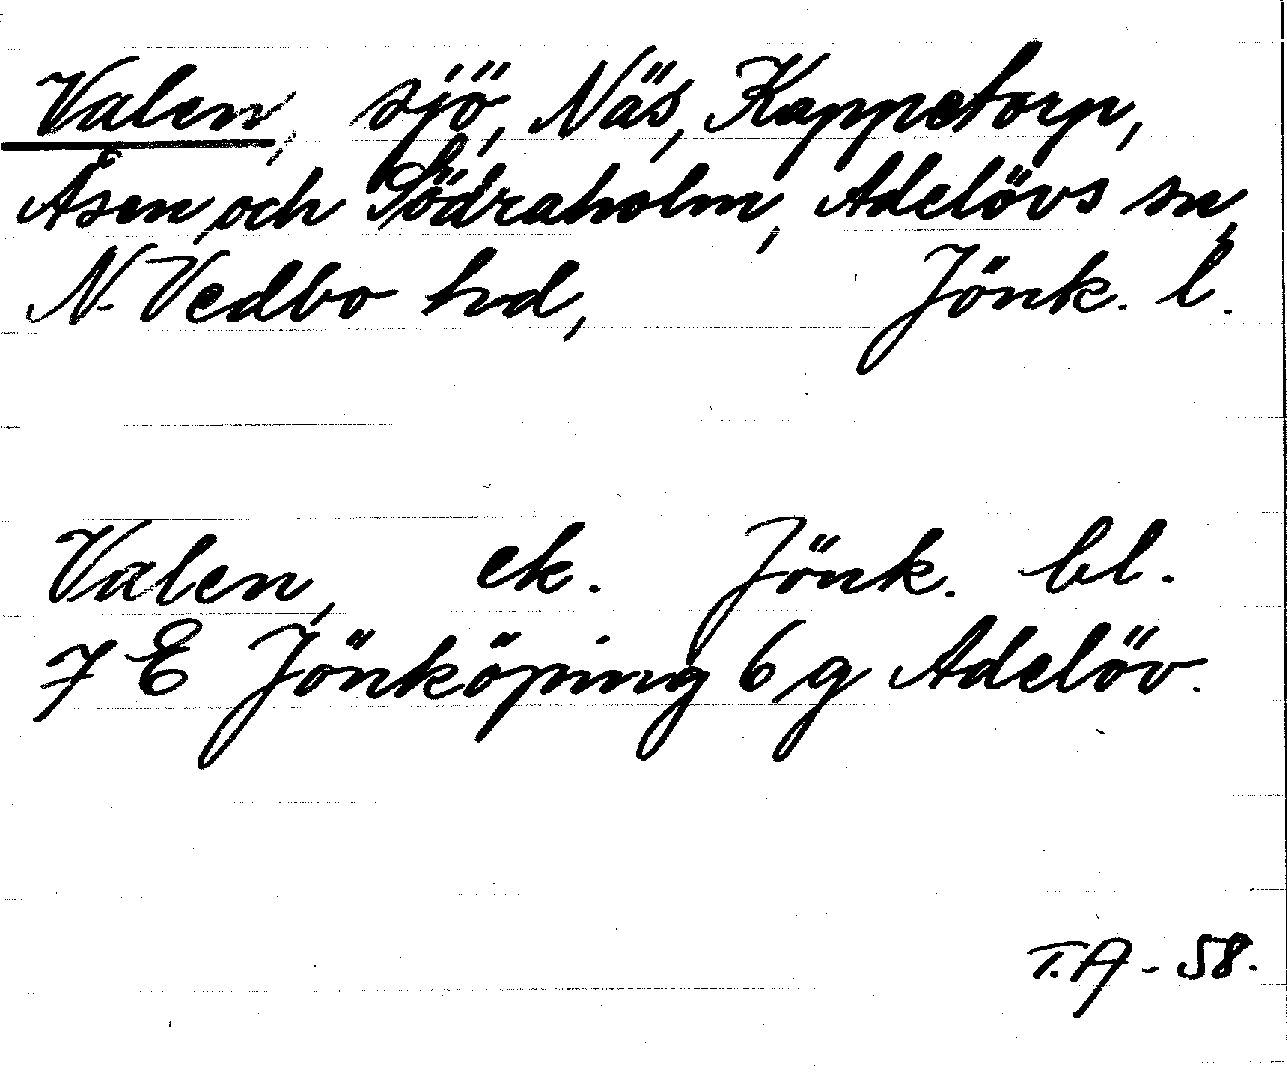 Valen, sjö, Näs, Kappetorp,
Åsen och Södraholm, Adelövs sn,
N. Vedbo hd, Jönk. l.
Valen, ek. Jönk. bl.
7 E Jönköping 6 g Adelöv.
T.A - 58.